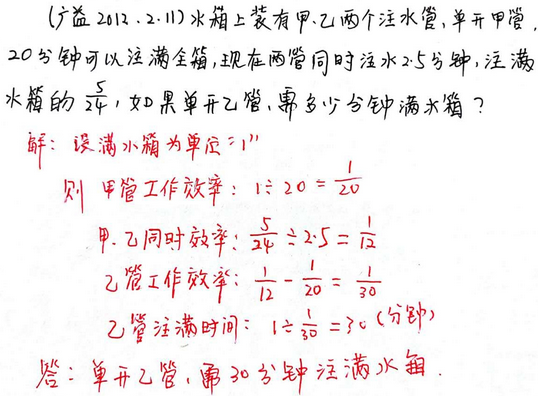 (广益2012.2.11)水箱上装有甲.乙两个注水管,单开甲管,
20分钟可以注满全箱,现在两管同时注水2.5分钟,注满
水箱的 5/24,如果单开乙管,需多少分钟满水箱?
解:设满水箱为单位"1"
则 甲管工作效率:1÷20=1/20
甲.乙同时效率:5/24÷2.5=1/12
乙管工作效率:1/12-1/20=1/30
乙管注满时间:1÷1/30=30(分钟)
答:单开乙管,需30分钟注满水箱.